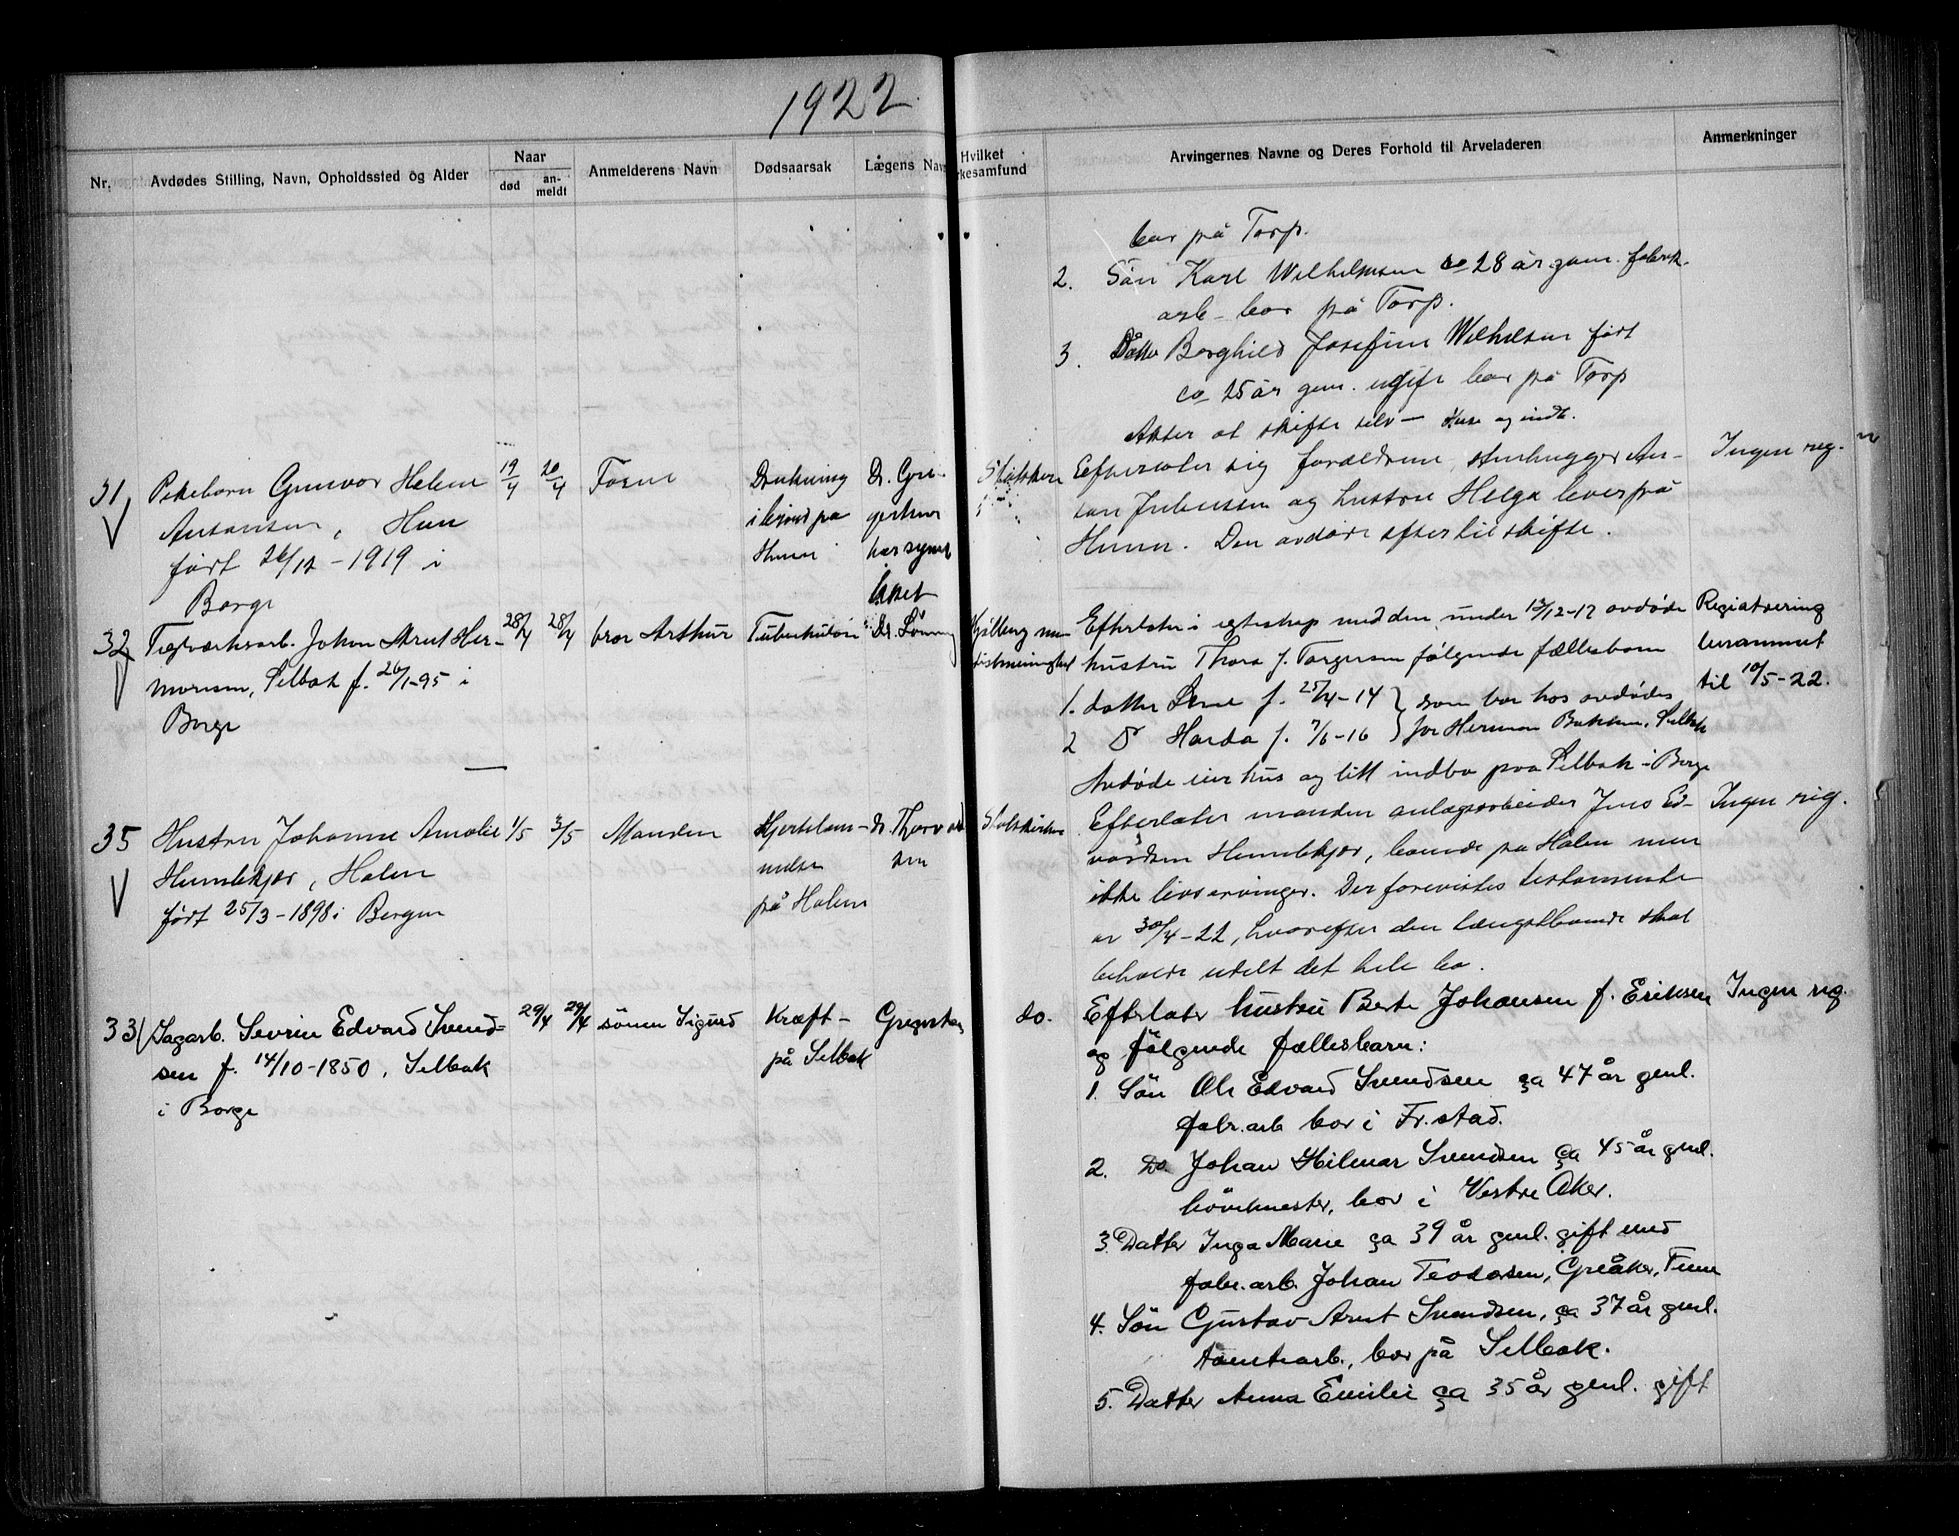 1922
Nr.
Avdødes Stilling, Navn, Opholdssted og Alder
Naar
død
an-
meldt
Anmelderens Navn
Dødsaarsak
Lægens Nav
Hvilket
rkesamfund
Arvingernes Navne og Deres Forhold til Arveladeren
Anmerkninger
bor på Torp.
2. Søn Karl Wilhelmsen ca 28 år gam. fabrik.
arb. bor på Torp.
3. Datter Borghild Josefine Wilhelmsen født
ca 25 år gam. ugift bor på Torp
Akter at skifte selv — Hus og indb.
31
Pikebarn Gunvor Helene
Antonsen, Hunn
født 26/12 - 1919 i
Borge
19/4
20/4
Fosne
Drukning
i brønd på
Hunn
Dr. Gre-
gersen
har synet
liket
Statskirken
Efterlater sig forældrene, stenhugger An-
ton Julensen og hustru Helga lever på
Hunn. Den avdøde efter lit skifte.
Ingen reg.
32
Teglverksarb. Johan Arnt Her-
mansen, Selbak f. 26/1-95 i
Borge
28/4
28/4
bror Arthur
Tuberkulose
Dr. Lønning
Efterlater i egteskap med den under 13/12-17 avdøde
hustru Thora f. Torgersen følgende fællesbarn
1. datter Lene f. 25/4-14 } som bor hos avdødes
2 D Harda f. 7/6-16 } far Herman Bakken, Selbak
Avdøde eier hus og litt indbo paa Selbak i Borge
Registrering
berammet
til 10/5-22.
35
Hustru Johanne Amalie
Hunnbkjær, Holen
født 25/3-1898 i Bergen
1/5
3/5
Manden
Hjertelam-
melse
på Holen
dr. Thorvald
sen
Statskirken
Efterlater manden anlægsarbeider Jens Ed-
vardsen Hunnbkjær, boende på Holen men
ikke livsarvinger. Der forevistes testamente
av 30/4-22, hvorefter den længstlevende skal
beholde udelt det hele bo.
Ingen reg.
33
Sagarb. Sevrin Edvard Svend-
sen f. 14/10-1850, Selbak
i Borge
29/4
29/4
sønen Sigurd
Kræft -
på Selbak
Gregersen
do.
Efterlater hustru Berte Johansen f. Eriksen
og følgende fællesbarn:
1. Søn Ole Edvard Svendsen ca 47 år gml.
fabr.arb bor i Fr.stad.
2. Do Johan Hilmar Svendsen ca 45 år gml.
høvlmester, bor i Vestre Aker.
3. Datter Inga Marie ca 39 år gml. gift med
fabr.arb. Johan Teodorsen, Greåker, Tune
4. Søn Gustav Arnt Svendsen, ca 37 år gml.
tomtearb., bor på Selbak.
5. Datter Anna Emilie ca 35 år gml. gift
Ingen reg.